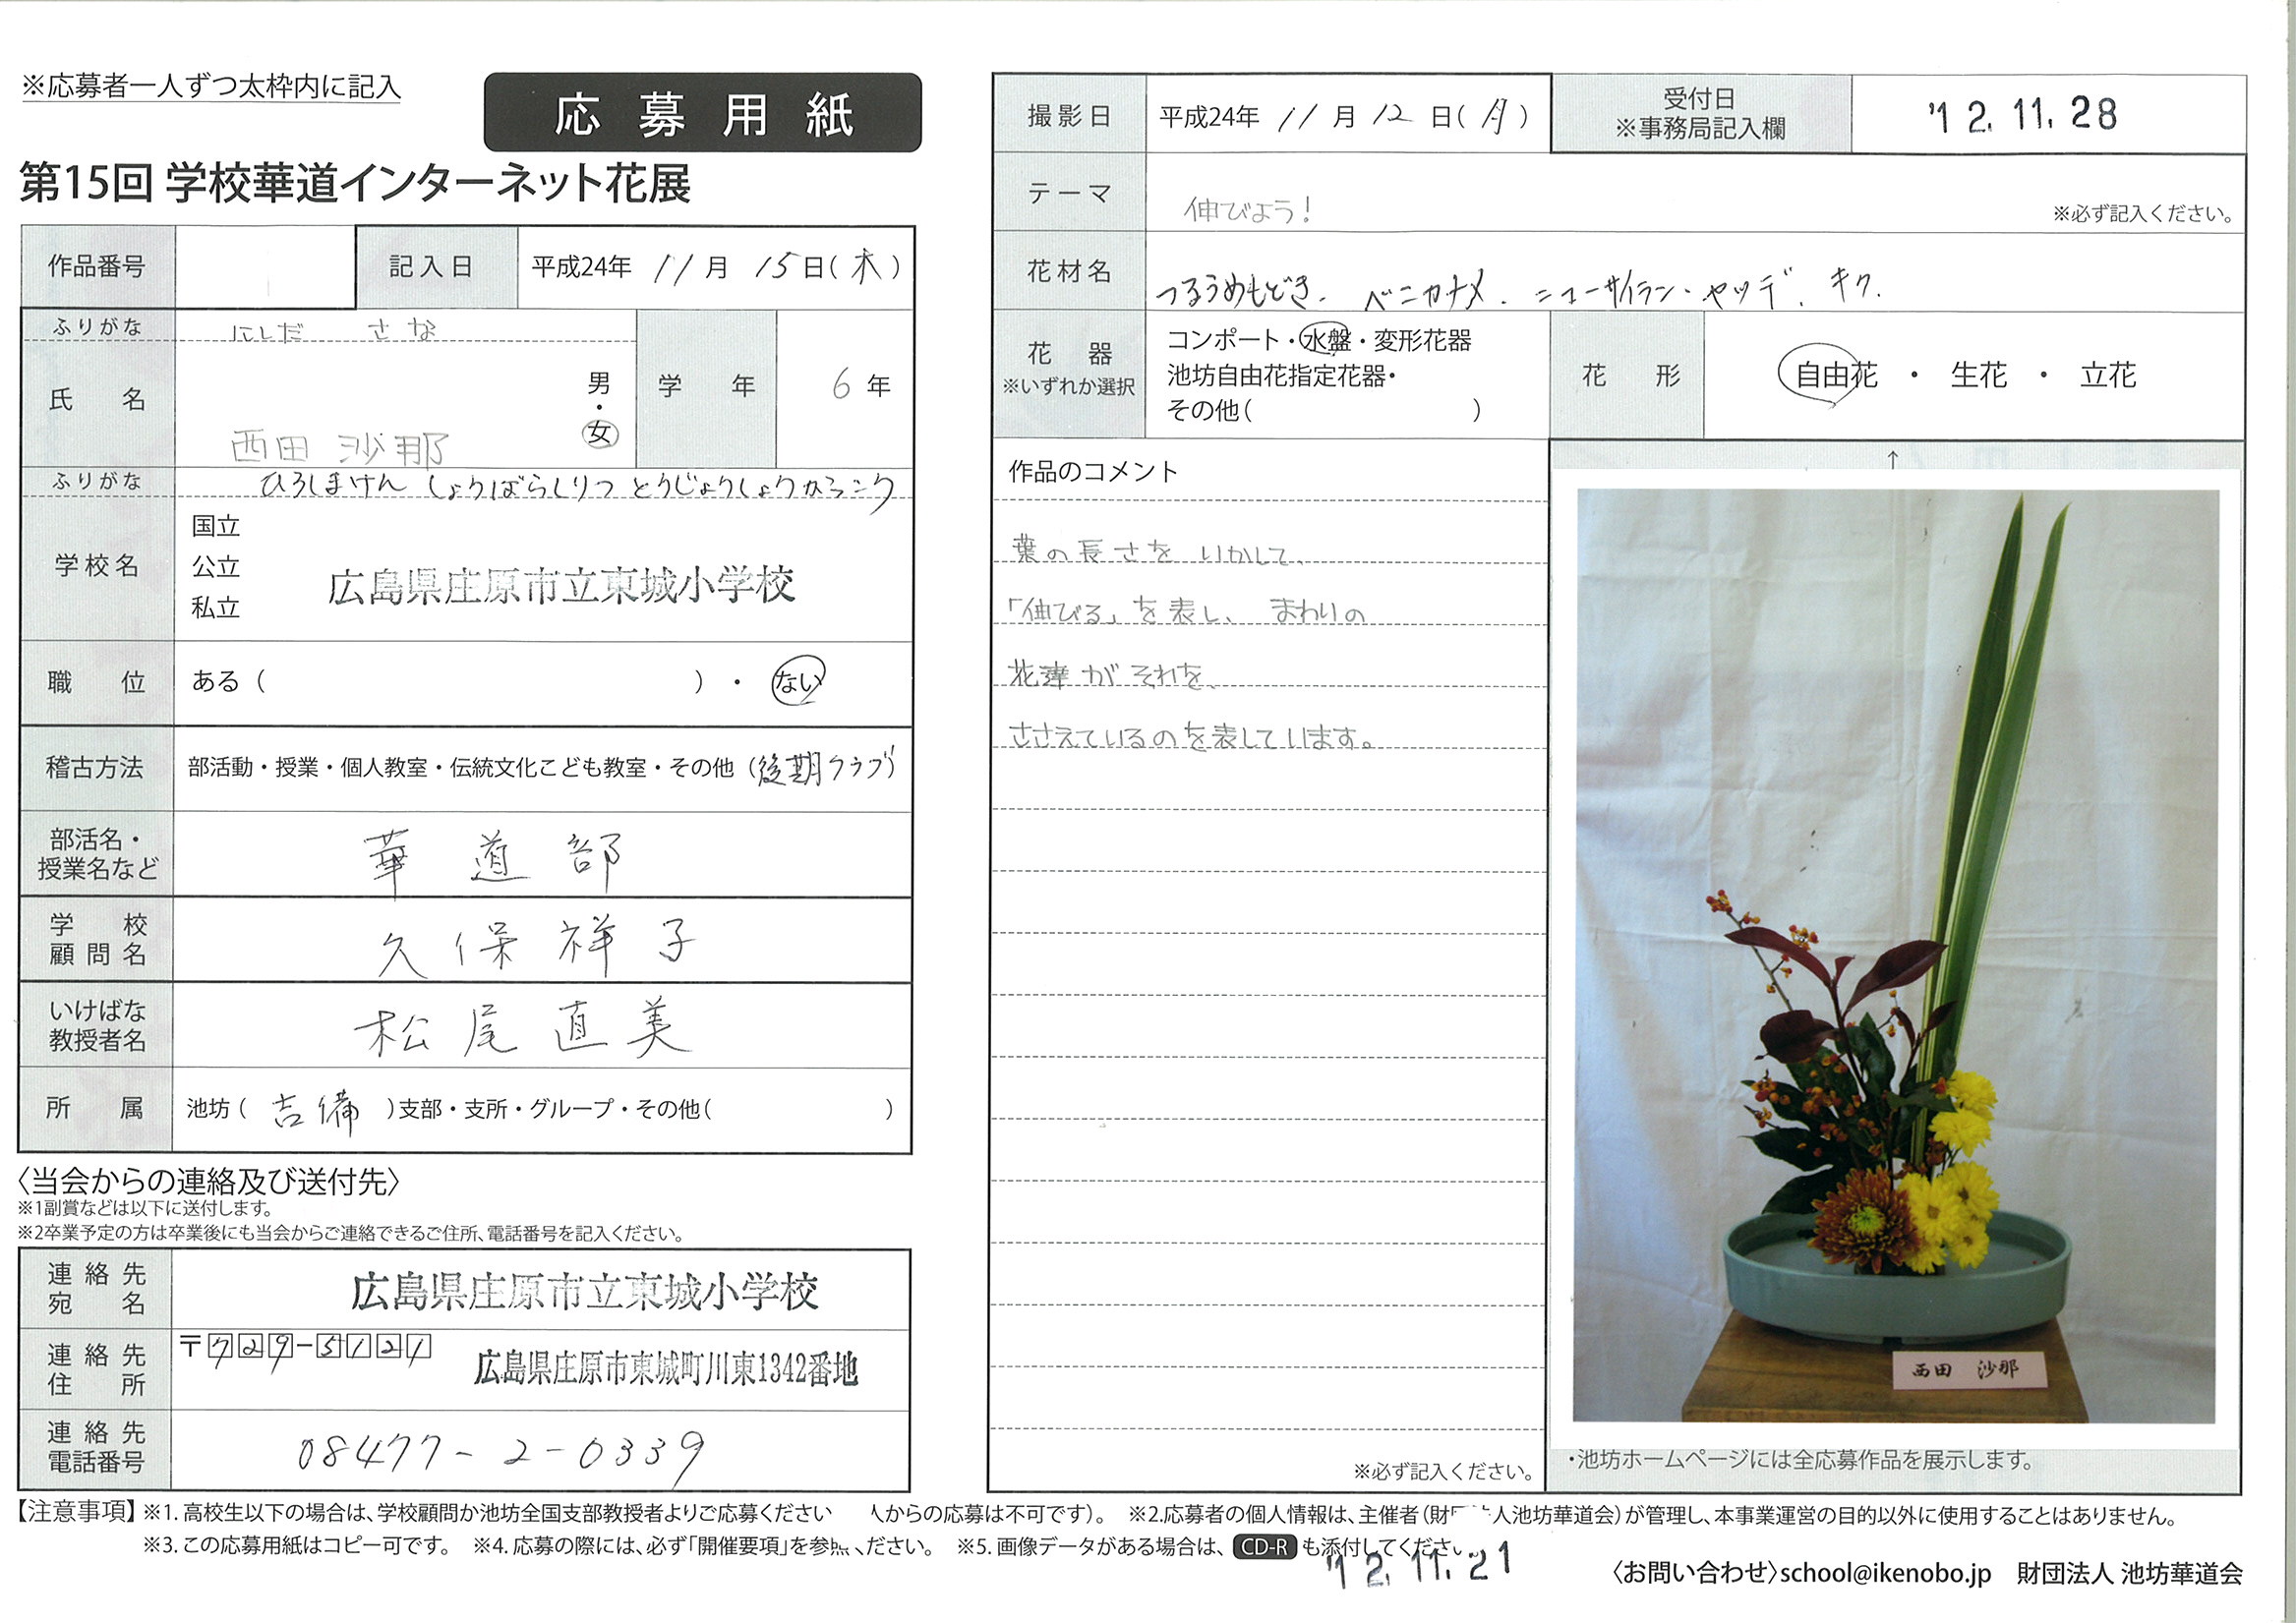 ※応募者一人ずつ太枠内に記入
応募用紙
第15回 学校華道インターネット花展
作品番号
記入日 平成24年 11月 15日(木)
ふりがな にしだ さな
氏名 西田 沙那 男・女
学年 6年
ふりがな ひろしまけん しょうばらしりつ とうじょうしょうがっこう
学校名 国立 公立 私立 広島県庄原市立東城小学校
職位 ある( )・ない
稽古方法 部活動・授業・個人教室・伝統文化こども教室・その他(後期クラブ)
部活名・
授業名など 華道部
学校
顧問名 久保祥子
いけばな
教授者名 松尾直美
所属 池坊(吉備)支部・支所・グループ・その他( )
〈当会からの連絡及び送付先〉
※1副賞などは以下に送付します。
※2卒業予定の方は卒業後にも当会からご連絡できるご住所、電話番号を記入ください。
連絡先
宛名 広島県庄原市立東城小学校
連絡先
住所 〒729-5121 広島県庄原市東城町川東1342番地
連絡先
電話番号 08477-2-0339
撮影日 平成24年 11月 12日(月)
受付日
※事務局記入欄 '12.11.28
テーマ 伸びよう! ※必ず記入ください。
花材名 つるうめもどき. ベニカナメ. ニューサイラン. ヤツデ. キク.
花器
※いずれか選択
コンポート・水盤・変形花器
池坊自由花指定花器・
その他( )
花形 自由花・生花・立花
作品のコメント
葉の長さを いかして、
「伸びる」を表し、 まわりの
花達が それを、
ささえているのを表しています。
※必ず記入ください。
↑
西田 沙那
・池坊ホームページには全応募作品を展示します。
【注意事項】※1.高校生以下の場合は、学校顧問か池坊全国支部教授者よりご応募ください 人からの応募は不可です)。 ※2.応募者の個人情報は、主催者(財 人池坊華道会)が管理し、本事業運営の目的以外に使用することはありません。
※3.この応募用紙はコピー可です。 ※4.応募の際には、必ず「開催要項」を参照 ください。 ※5.画像データがある場合は、CD-Rも添付してください
'12.11.21
〈お問い合わせ〉school@ikenobo.jp 財団法人 池坊華道会